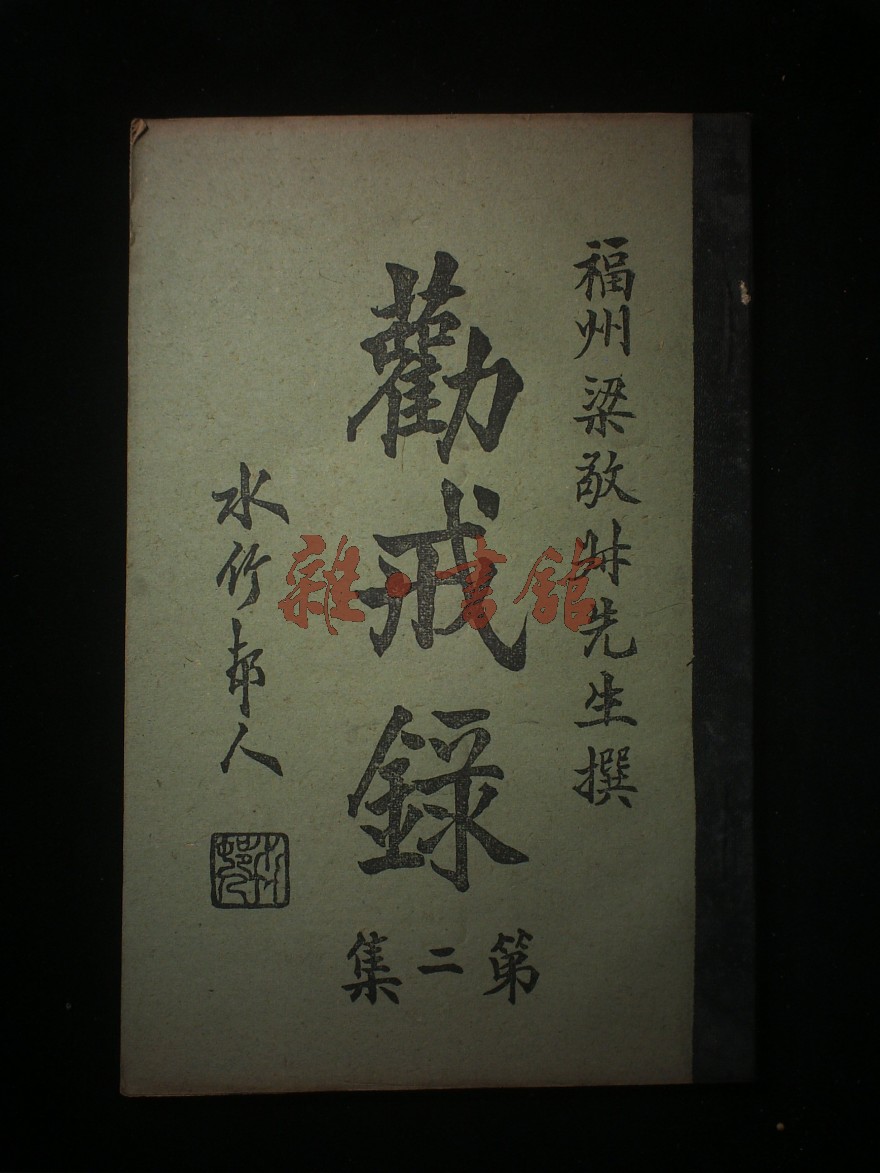 福州梁敬尗先生撰
勸戒錄
第二集
水竹邨人
雜·書館